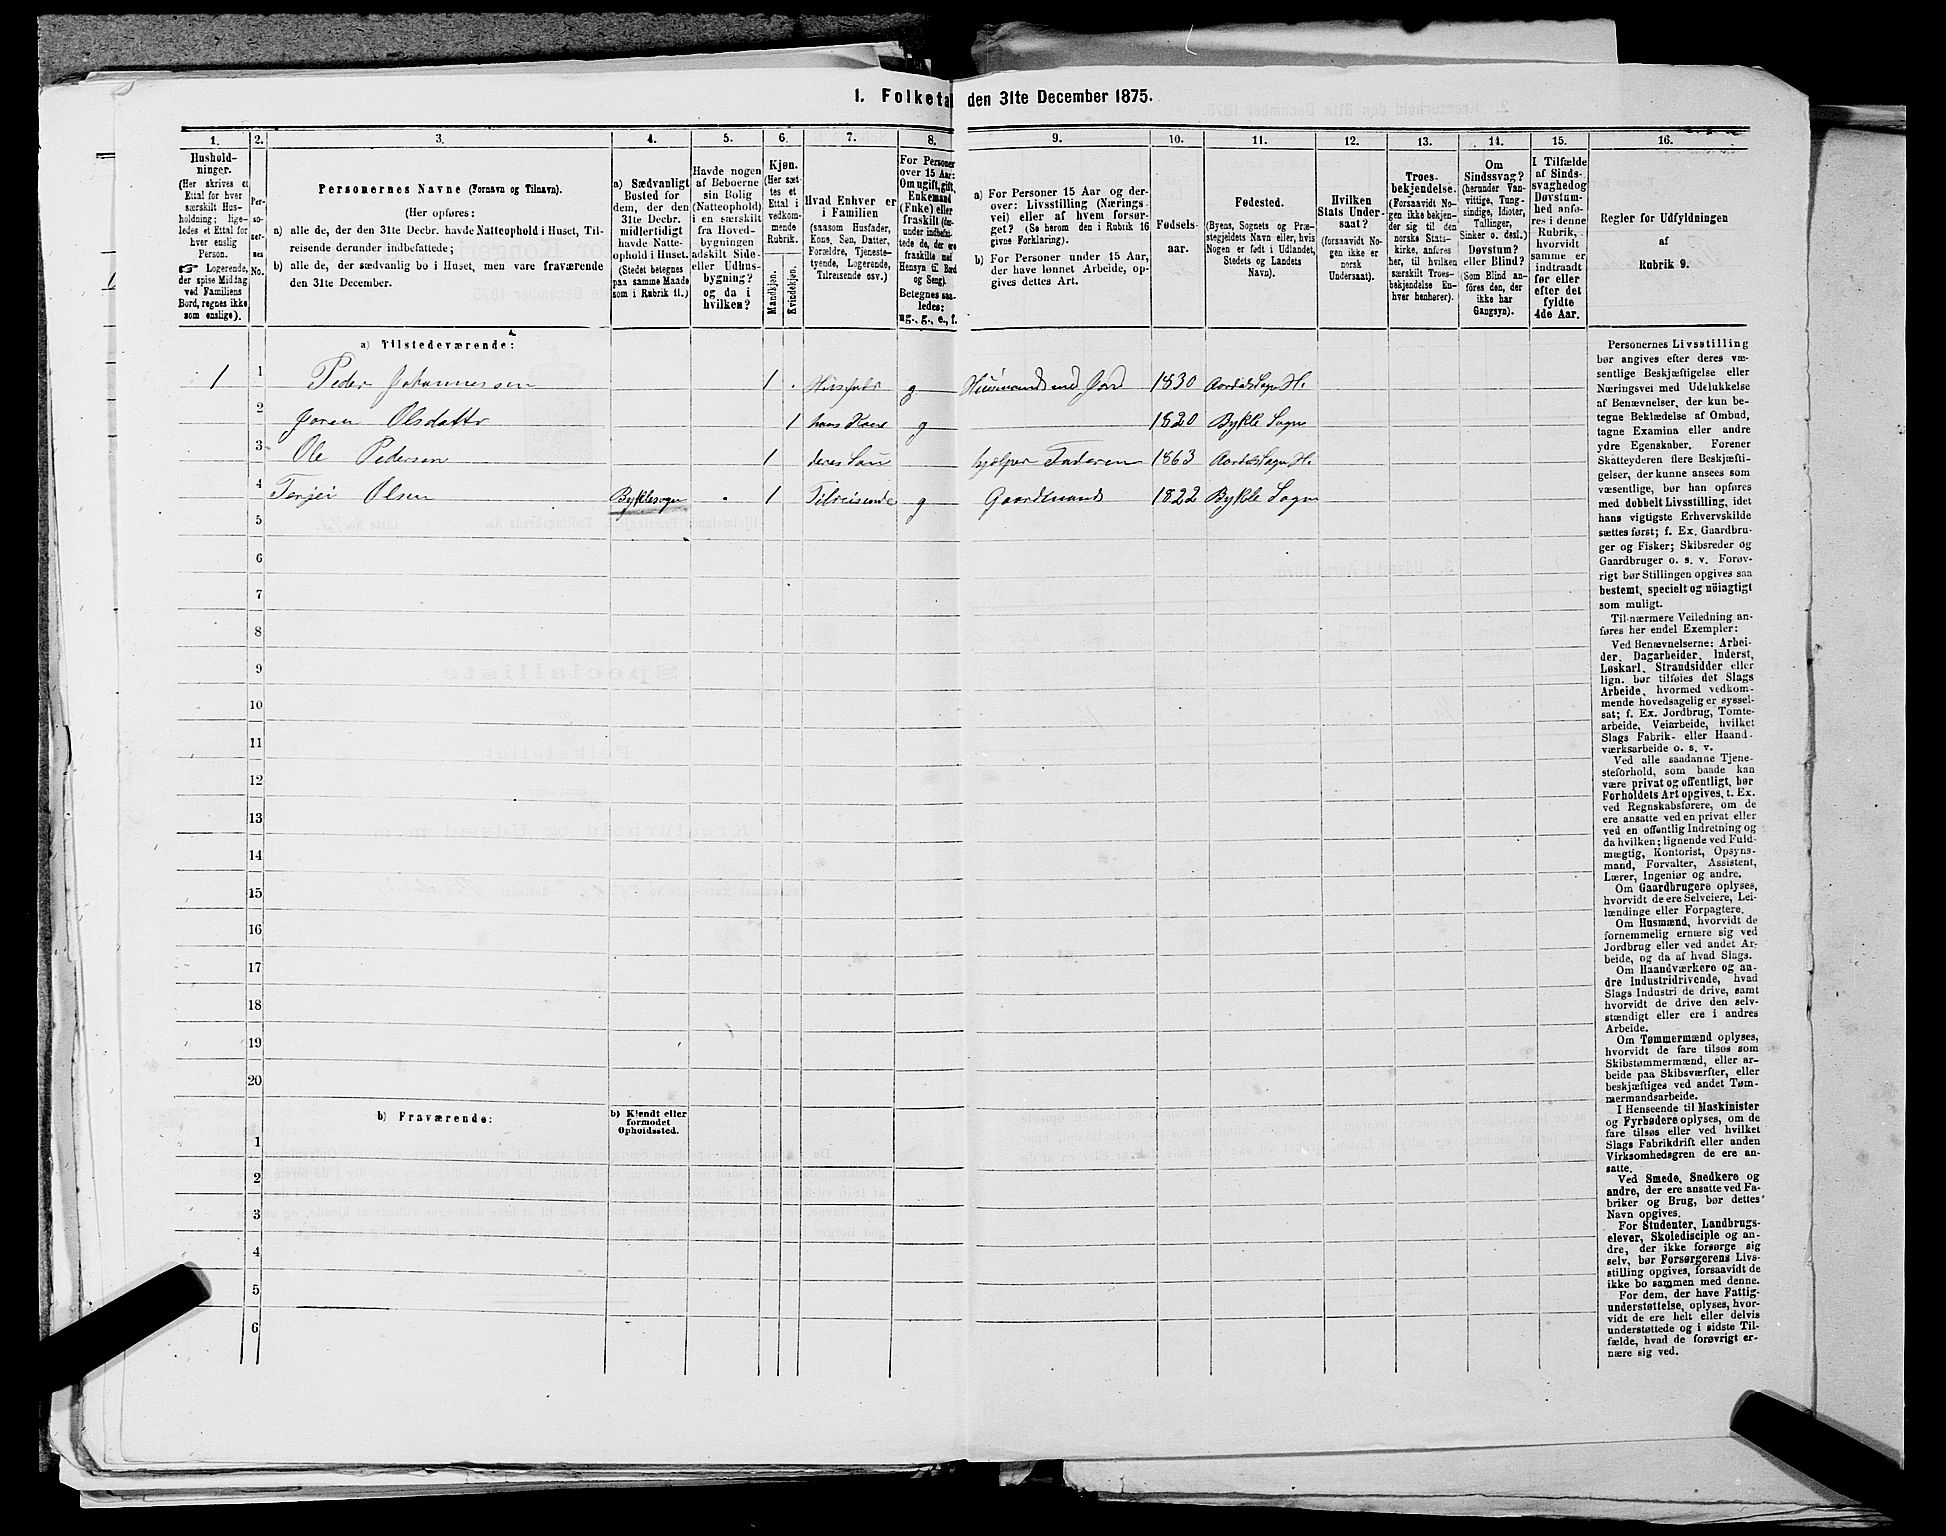 1. Folketa den 31te December 1875.
1. 2. 3. 4. 5. 6. 7. 8. 9. 10. 11. 12. 13. 14. 15. 16.
Hushold-
ninger.
(Her skrives et
Ettal for hver
særskilt Hus-
holdning; lige-
ledes et Ettal for
hver enslig
Person.
☞ Logerende,
der spise Middag
ved Familiens
Bord, regnes ikke
som enslige).
Per-
so-
ner-
nes
No.
Personernes Navne (Fornavn og Tilnavn).
(Her opføres:
a) alle de, der den 31te Decbr. havde Natteophold i Huset, Til-
reisende derunder indbefattede;
b) alle de, der sædvanlig bo i Huset, men vare fraværende
den 31te December.
a) Sædvanligt
Bosted for
dem, der den
31te Decbr.
midlertidigt
havde Natte-
ophold i Huset.
(Stedet betegnes
paa samme Maade
som i Rubrik 11.)
Havde nogen
af Beboerne
sin Bolig
(Natteophold)
i en særskilt
fra Hoved-
bygningen
adskilt Side-
eller Udhus-
bygning?
og da i
hvilken?
Kjøn.
(Her sæt-
tes et
Ettal i
vedkom-
mende
Rubrik.
Mandkjøn.
Kvindekjøn.
Hvad Enhver er
i Familien
(saasom Husfader,
Kone, Søn, Datter,
Forældre, Tjeneste-
tyende, Logerende,
Tilreisende
osv.)
For Personer
over 15 Aar:
Om ugift, gift,
Enkemand
(Enke) eller
fraskilt (der-
under indbefat-
tede de, der ere
fraskilte med
Hensyn til Bord
og Seng).
Betegnes saa-
ledes:
ug., g., e., f.
a) For Personer 15 Aar og der-
over: Livsstilling (Nærings-
vei) eller af hvem forsør-
get? (Se herom den i Rubrik 16
givne Forklaring).
b) For Personer under 15 Aar,
der have lønnet Arbeide, op-
gives dettes Art.
Fødsels-
aar.
Fødested.
(Byens, Sognets og Præ-
stegjeldets Navn eller, hvis
Nogen er født i Udlandet,
Stedets og Landets
Navn).
Hvilken
Stats Under-
saat?
(forsaavidt No-
gen ikke er
norsk
Undersaat).
Troes-
bekjendelse.
(Forsaavidt No-
gen ikke bekjen-
der sig til den
norske Stats-
kirke, anføres
her, til hvilken
særskilt Troes-
bekjendelse En-
hver henhører).
Om
Sindssvag?
(herunder Van-
vittige, Tung-
sindige, Idioter,
Tullinger,
Sinker o. desl.)
Døvstum?
eller Blind?
(Som Blind an-
føres den, der
ikke har
Gangsyn).
I Tilfælde
af Sinds-
svaghed og
Døvstum-
hed anfø-
res i denne
Rubrik,
hvorvidt
samme er
indtraadt
før eller
efter det
fyldte
4de Aar.
Regler for Udfyldningen
af
Rubrik 9.
a) Tilstedeværende:
1 1 Peder Johannessen 1 Husfader g Huusmand med Jord 1830 Aardals Sogn H.
2 Joren Olsdatter 1 hans Kone g 1820 Bykle Sogn
3 Ole Pedersen 1 deres Søn hjelper Faderen 1863 Aardals Sogn H.
4 Terjei Olsen Byklesogn 1 Tilreisende g Gaardmand 1822 Bykle Sogn
5
6
7
8
9
10
11
12
13
14
15
16
17
18
19
20
b) Fraværende:
b) Kjendt eller
formodet
Opholdssted.
1
2
3
4
5
6
Personernes Livsstilling
bør angives efter deres væ-
sentlige Beskjæftigelse eller
Næringsvei med Udelukkelse
af Benævnelser, der kun be-
tegne Beklædelse af Ombud,
tagne Examina eller andre
ydre Egenskaber. Forener
Skatteyderen flere Beskjæfti-
gelser, der kunne ansees som
væsentlige, bør han opføres
med dobbelt Livsstilling, idet
hans vigtigste Erhvervskilde
sættes først; f. Ex. Gaardbru-
ger og Fisker; Skibsreder og
Gaardbruger o. s. v. Forøv-
rigt bør Stillingen opgives saa
bestemt, specielt og nöiagtigt
som muligt.
Til nærmere Veiledning an-
føres her endel Exempler:
Ved Benævnelserne: Arbei-
der, Dagarbeider, Inderst,
Løskarl, Strandsidder eller
lign. bør tilføies det Slags
Arbeide, hvormed vedkom-
mende hovedsagelig er syssel-
sat; f. Ex. Jordbrug, Tomte-
arbeide, Veiarbeide, hvilket
Slags Fabrik- eller Haand-
værksarbeide o. s. v.
Ved alle saadanne Tjene-
steforhold, som baade kan
være privat og offentligt, bør
Forholdets Art opgives, t. Ex.
ved Regnskabsførere, om de
ere ansatte ved en privat eller
ved en offentlig Indretning og
da hvilken; lignende ved Fuld-
mægtig, Kontorist, Opsyns-
mand, Forvalter, Assistent,
Lærer, Ingeniør og andre.
Om Gaardbrugere oplyses,
hvorvidt de ere Selveiere, Lei-
lændinge eller Forpagtere.
Om Husmænd, hvorvidt de
fornemmelig ernære sig ved
Jordbrug eller ved andet Ar-
beide, og da af hvad Slags.
Om Haandværkere og an-
dre Industridrivende, hvad
Slags Industri de drive, samt
hvorvidt de drive den selv-
stændigt eller ere i andres
Arbeide.
Om Tømmermænd oplyses,
hvorvidt de fare tilsøs som
Skibstømmermænd, eller ar-
beide paa Skibsværfter, eller
beskjæftiges ved andet Tøm-
mermandsarbeide.
I Henseende til Maskinister
og Fyrbødere oplyses, om de
fare tilsøs eller ved hvilket
Slags Fabrikdrift eller anden
Virksomhedsgren de ere an-
satte.
Ved Smede, Snedkere og
andre, der ere ansatte ved Fa-
briker og Brug, bør dettes
Navn opgives.
For Studenter, Landbrugs-
elever, Skoledisciple og an-
dre, der ikke forsørge sig
selv, bør Forsørgerens Livs-
stilling opgives, forsaavidt de
ikke bo sammen med denne.
For dem, der have Fattig-
understøttelse, oplyses, hvor-
vidt de ere helt eller delvis
understøttede og i sidste Til-
fælde, hvad de forøvrigt er-
nære sig ved.